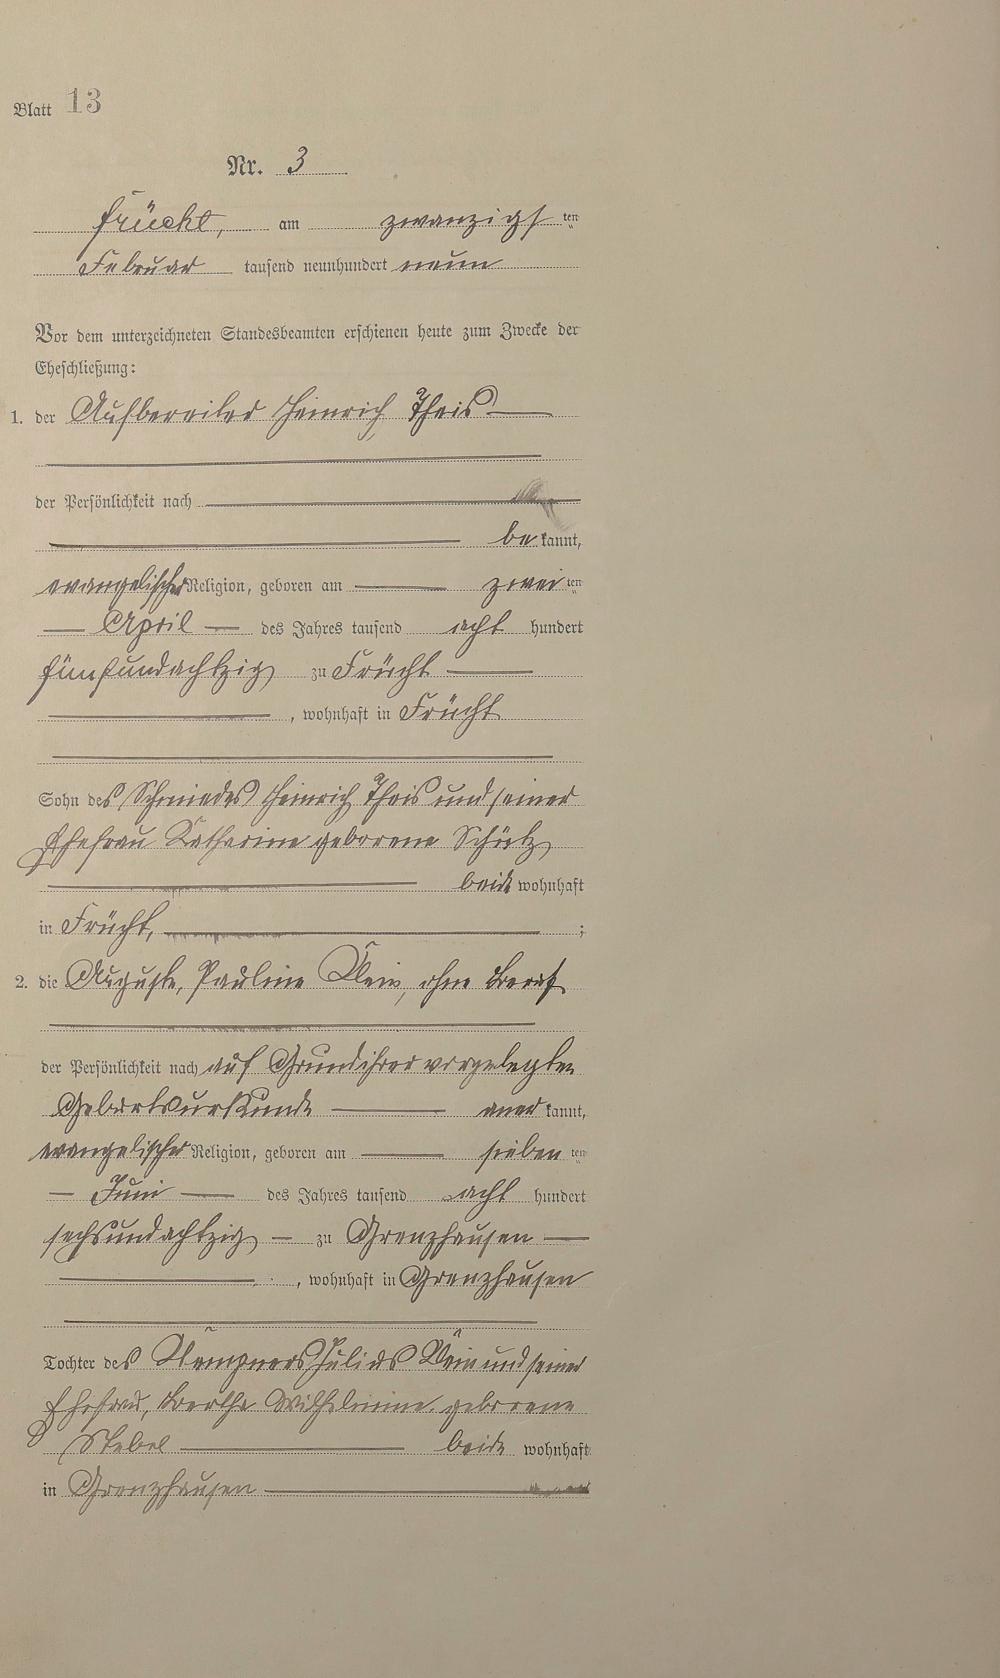 Blatt 13
Nr. 3
Frücht, am zwanzigsten
Februar tausend neunhundert neun
Vor dem unterzeichneten Standesbeamten erschienen heute zum Zwecke der
Eheschließung:
1. der Aufbereiter Heinrich Theis
der Persönlichkeit nach
bekannt,
evangelischer Religion, geboren am zweiten
April des Jahres tausend acht hundert
fünfundachtzig zu Frücht
, wohnhaft in Frücht
Sohn des Schmiedes Heinrich Theis und seiner
Ehefrau Katharine geborene Schütz
beide wohnhaft
in Frücht, ;
2. die Auguste, Pauline Klein, ohne Beruf
der Persönlichkeit nach auf Grund ihrer vorgelegten
Geburtsurkunde anerkannt,
evangelischer Religion, geboren am siebenten
Juni des Jahres tausend acht hundert
sechsundachtzig zu Grenzhausen
, wohnhaft in Grenzhausen
Tochter des Klempners Julius Klein und seiner
Ehefrau, Bertha Wilhelmine geborene
beide wohnhaft
in Grenzhausen